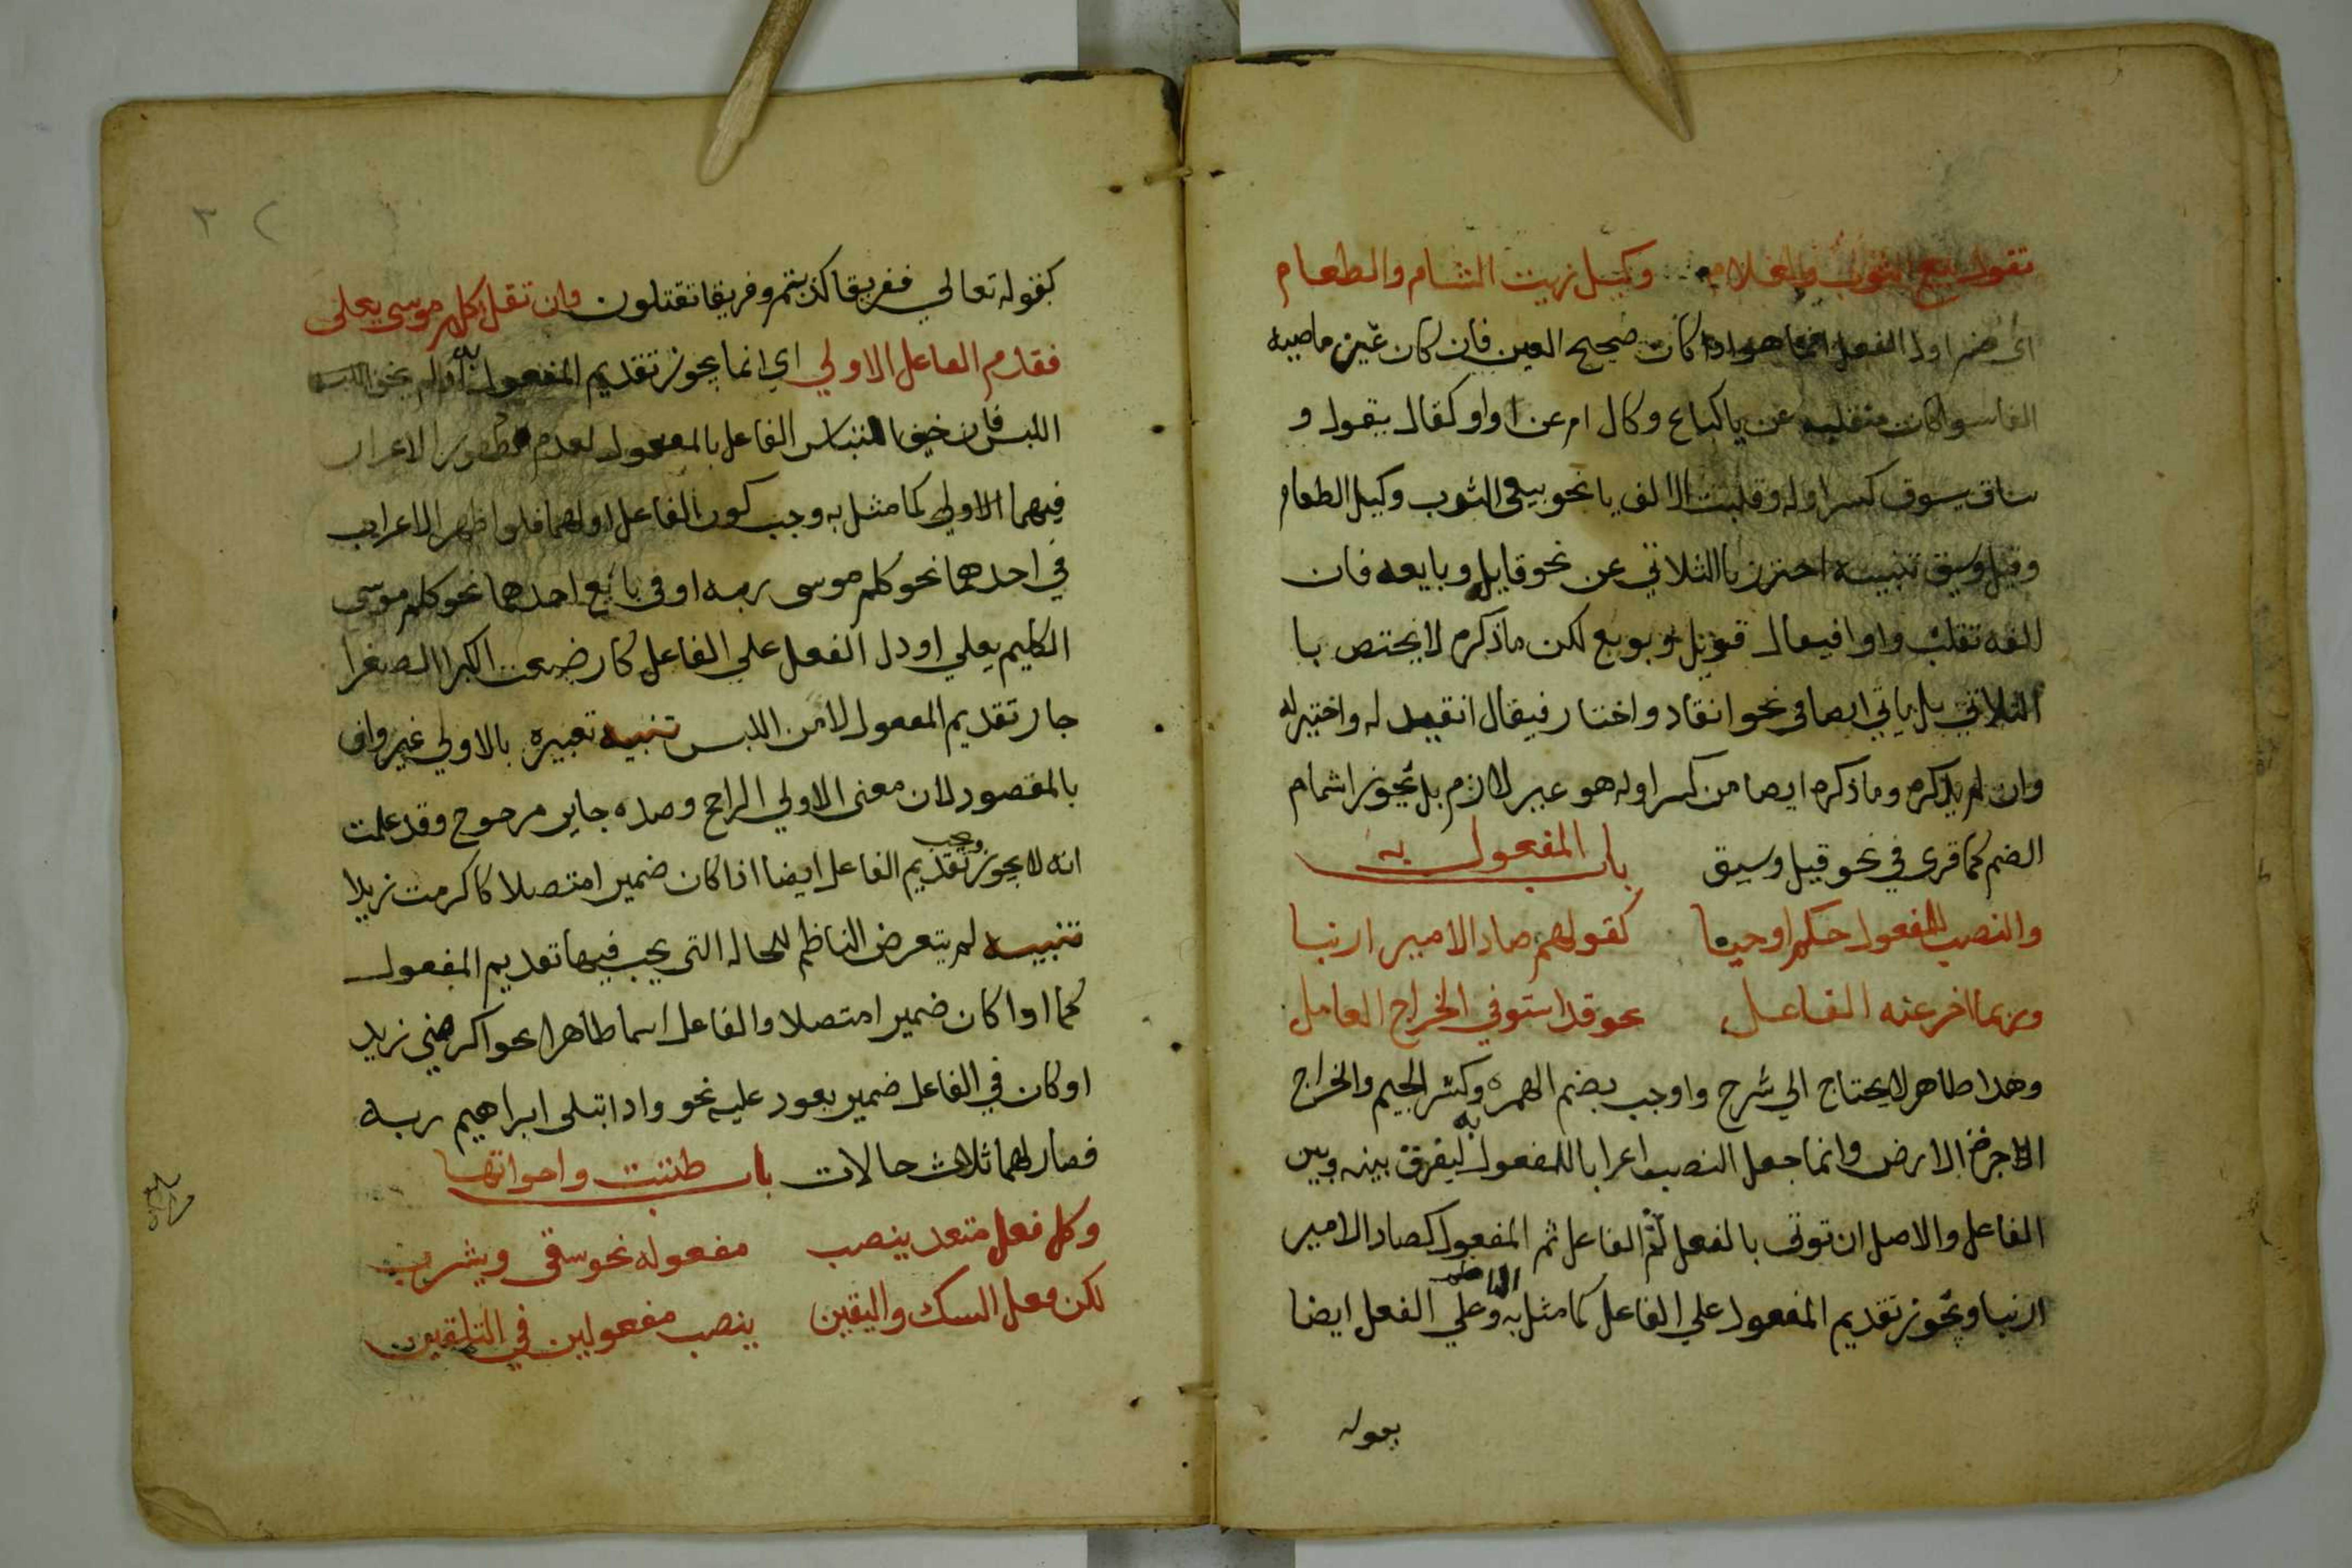 تقول بيع الثوب والغلام وكيل زيت الشام والطعام
اى ضم اول الفعل انما هو اذا كان صحيح العين فان كان عين ماضيه
الفا سوا كان منقلبه عن يا كباع وكال ام عن واو كقال يقول و
ساق يسوق كسر اوله وقلبت الالف يا نحو بيع الثوب وكيل الطعام
وقيل وسيق تنبيه احترز باالثلاثي عن نحو قايل وبايعه فان
الفه تقلب واوا فيقال قويل وبويع لكن ماذكره لا يختص با
الثلاثي بل ياتي ايضا في نحو انقاد واختار فيقال انقيد له واختير له
وان لم يذكره وماذكره ايضا من كسر اوله هو غير لازم بل يجوز اشمام
الضم كما قرى في نحو قيل وسيق باب المفعول به
والنصب للمفعول حكم اوجبا كقولهم صاد الامير ارنبا
وربما اخر عنه الفاعل نحو قد استوفي الخراج العامل
وهذا ظاهر لا يحتاج الي شرح واوجب بضم الهمزه وكسر الجيم والخراج
الارض وانما جعل النصب اعرابا للمفعول به ليفرق بينه وبين
الفاعل والاصل ان توتى بالفعل ثم الفاعل ثم المفعول كصاد الامير
ارنبا ويجوز تقديم المفعول علي الفاعل كما مثل به وعلي الفعل ايضا
بعوله
٣
كقوله تعالي ففريقا كذبتم وفريقا تقتلون وان تقل كلم موسى يعلى
فقدم الفاعل الاولي اي انما يجوز تقديم المفعول به
اللبس فان خيف التباس الفاعل بالمفعول لعدم ظهور الاعراب
فيهما الاولي كما مثل به وجب كون الفاعل اولهما فلو اظهر الاعراب
في احدهما نحو كلم موسى ربه او في تابع احدهما نحو كلم موسى
الكليم يعلي او دل الفعل علي الفاعل كارضعت الكبرا الصغرا
جاز تقديم المفعول لامن اللبس تنبيه تعبيره بالاولي غير واف
بالمقصود لان معنى الاولي الراجح وضده جايز مرجوح وقد علمت
انه لا يجوز وجب تقديم الفاعل ايضا اذا كان ضميرا متصلا كاكرمت زيدا
تنبيه لم يتعرض الناظم للحاله التي يجب فيها تقديم المفعول
كما اوا كان ضميرا متصلا والفاعل اسما ظاهرا نحو اكرمني زيد
او كان في الفاعل ضمير يعود عليه نحو واذ ابتلى ابراهيم ربه
فصار لهما ثلاث حالات باب ظننت واخواتها
وكل فعل متعد ينصب مفعوله نحو سقى ويشرب
لكن فعل الشك واليقين ينصب مفعولين في التلقين